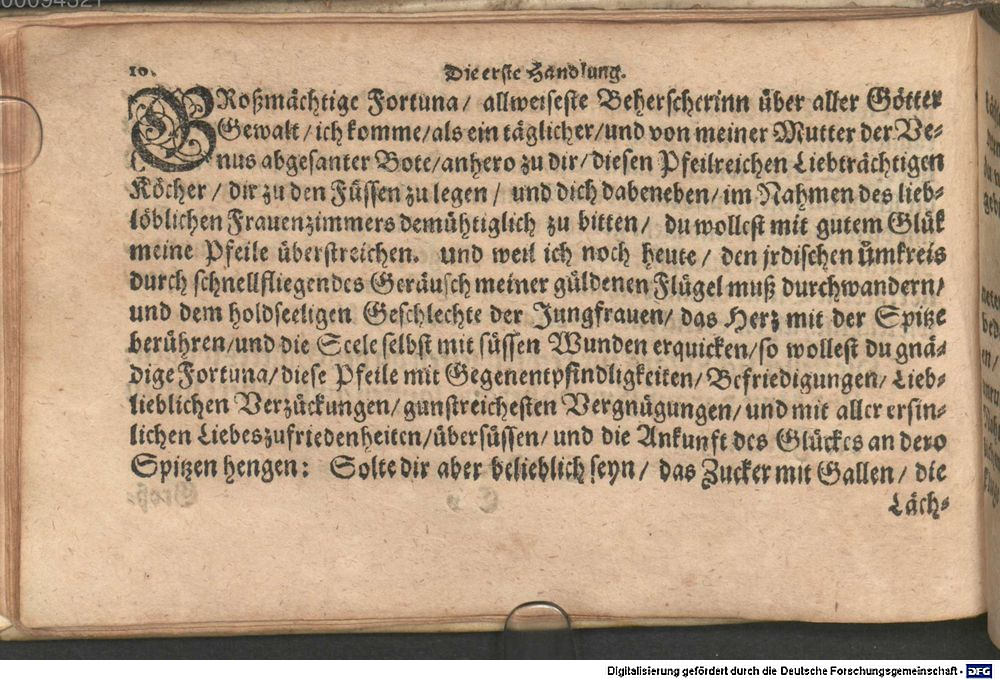 00094321
10. Die erste Handlung.
GRoßmächtige Fortuna/ allweiseste Beherscherinn über aller Götter
Gewalt/ ich komme/ als ein täglicher/ und von meiner Mutter der Ve-
nus abgesanter Bote/ anhero zu dir/ diesen Pfeilreichen Liebträchtigen
Köcher/ dir zu den Füssen zu legen/ und dich dabeneben/ im Nahmen des lieb-
löblichen Frauenzimmers demühtiglich zu bitten/ du wollest mit gutem Glük
meine Pfeile überstreichen. und weil ich noch heute/ den jrdischen ümkreis
durch schnellfliegendes Geräusch meiner güldenen Flügel muß durchwandern/
und dem holdseeligen Geschlechte der Jungfrauen/ das Herz mit der Spitze
berühren/ und die Seele selbst mit süssen Wunden erquicken/ so wollest du gnä-
dige Fortuna/ diese Pfeile mit Gegenentpfindligkeiten/ Befriedigungen/ Lieb-
lieblichen Verzückungen/ gunstreichesten Vergnügungen/ und mit aller ersin-
lichen Liebeszufriedenheiten/ übersüssen/ und die Ankunft des Glückes an dero
Spitzen hengen: Solte dir aber belieblich seyn/ das Zucker mit Gallen/ die
Läch-
Digitalisierung gefördert durch die Deutsche Forschungsgemeinschaft - DFG